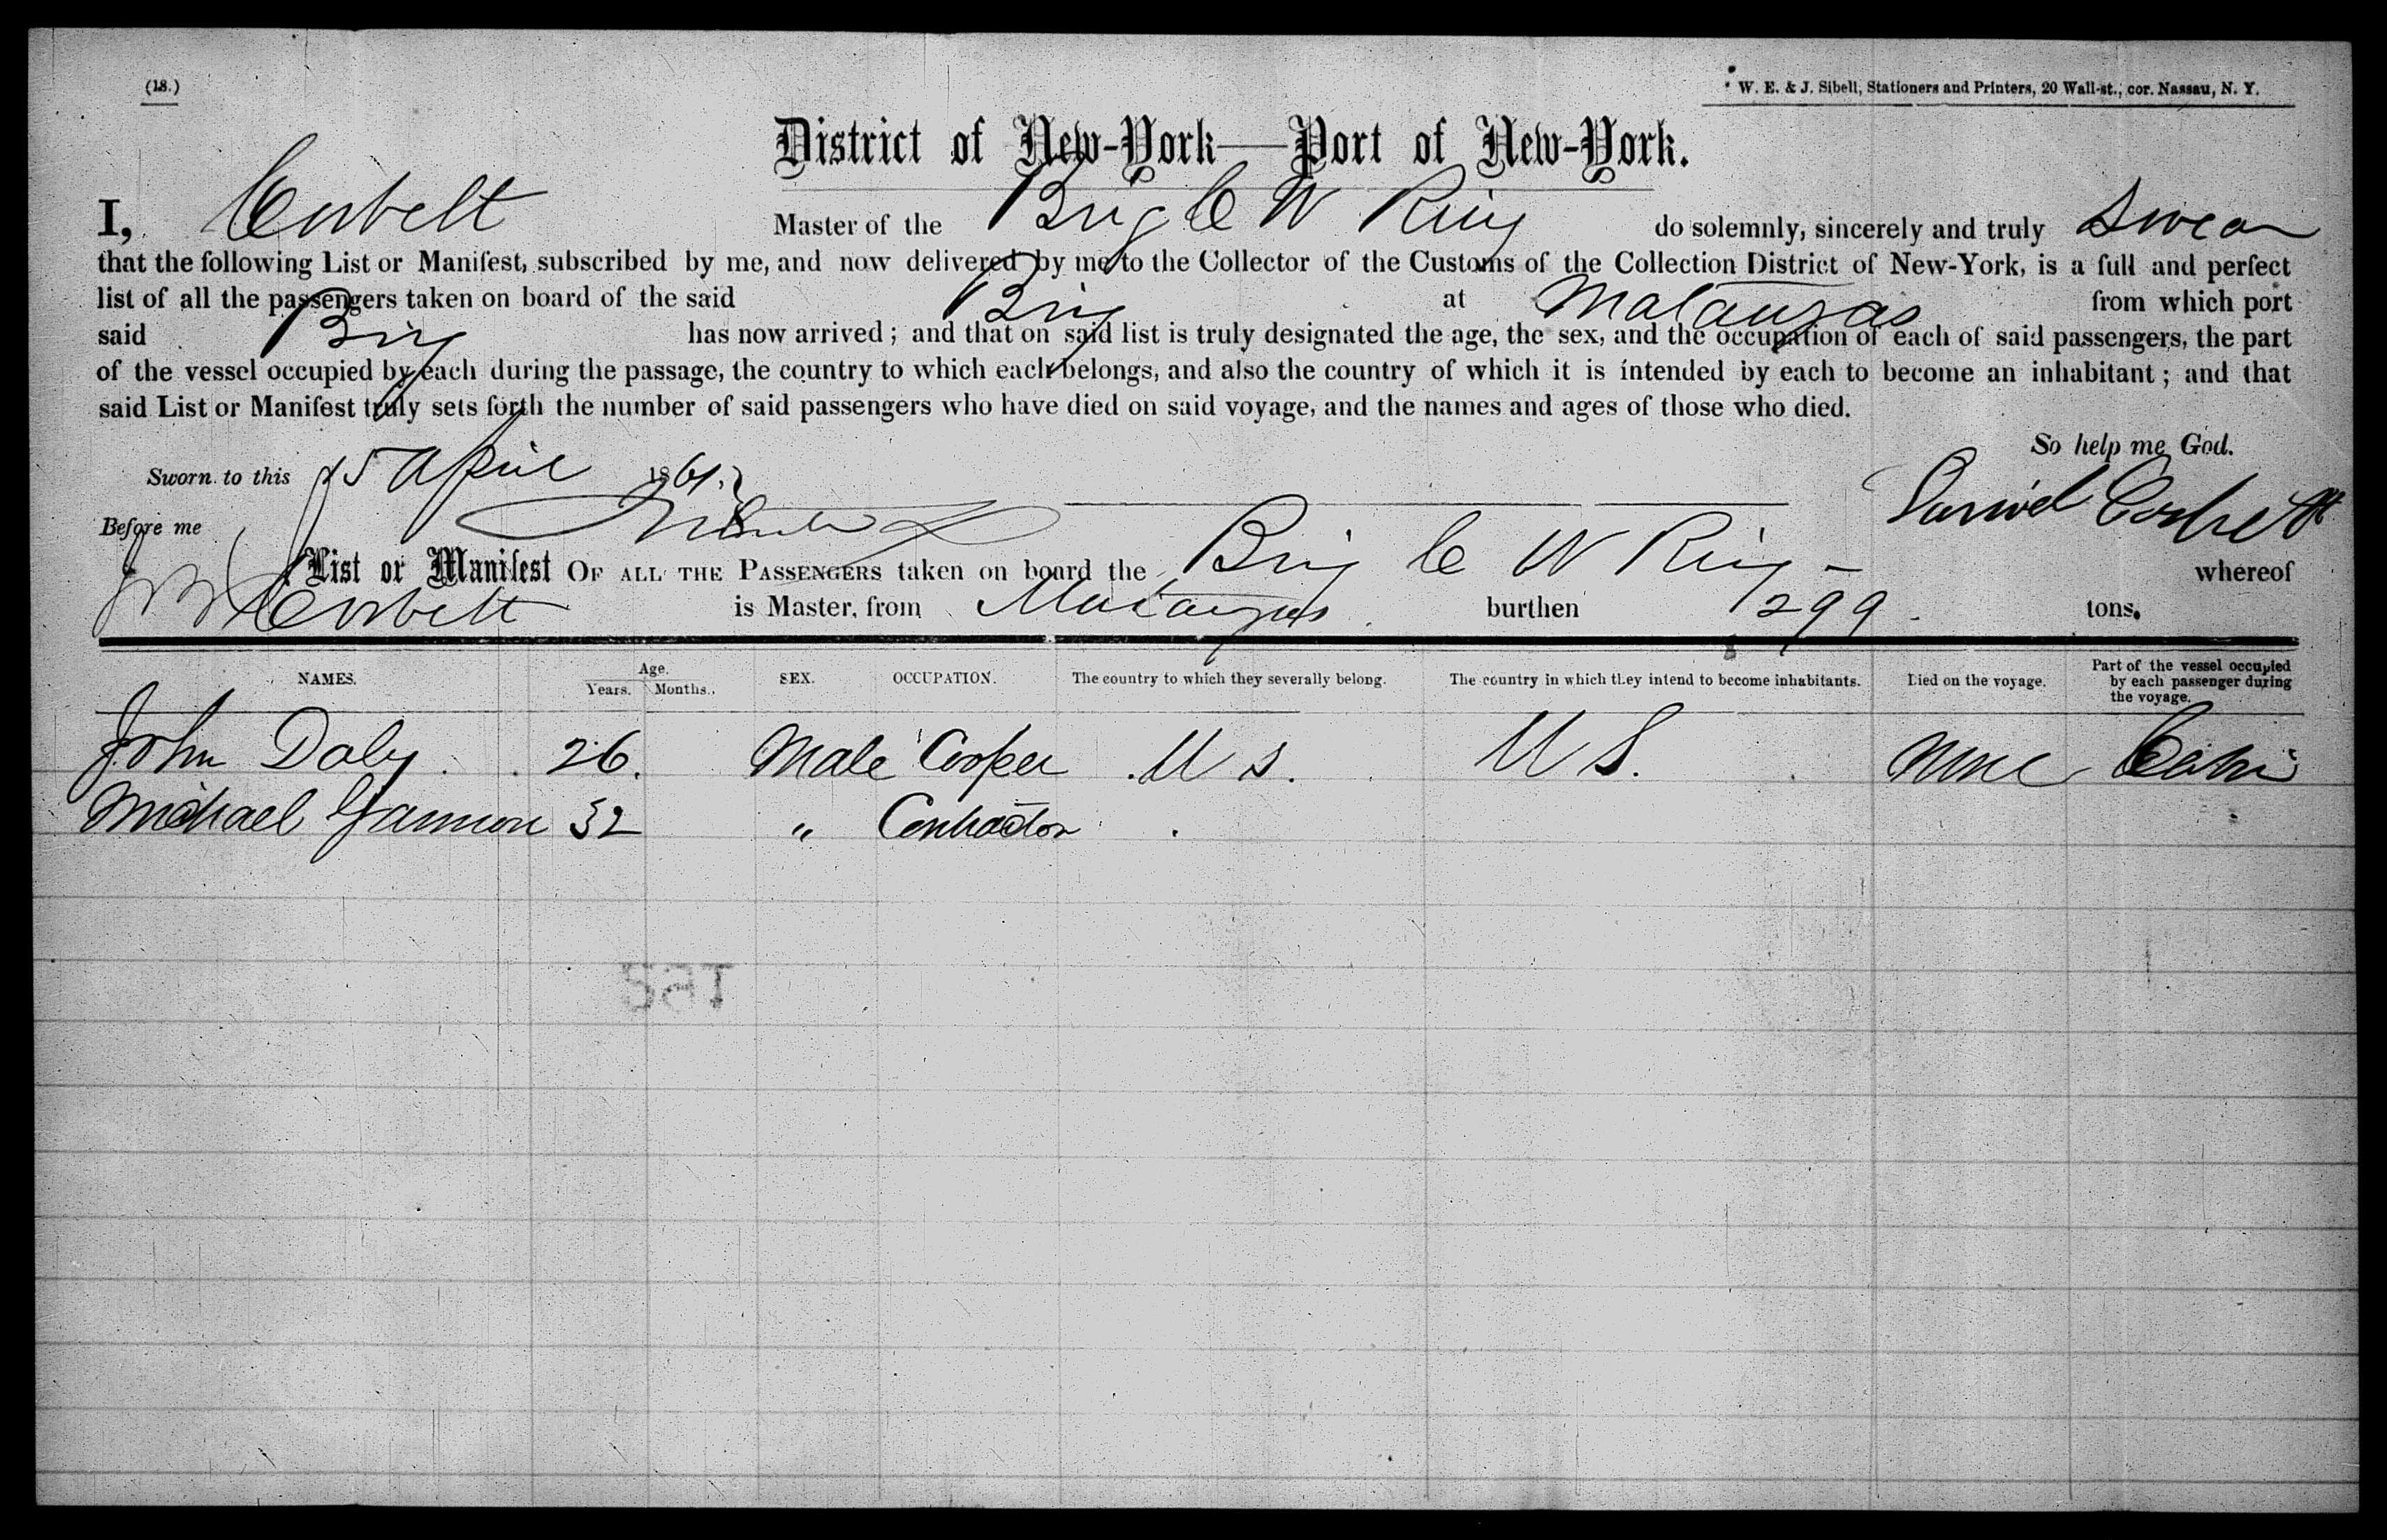 (18.)
W. E. & J. Sibell, Stationers and Printers, 20 Wall-st., cor. Nassau, N. Y.
District of New-York—Port of New-York.
I, Corbett Master of the Brig C W Ring do solemnly, sincerely and truly Swear
that the following List or Manifest, subscribed by me, and now delivered by me to the Collector of the Customs of the Collection District of New-York, is a full and perfect
list of all the passengers taken on board of the said Brig at Matanzas from which port
said Brig has now arrived; and that on said list is truly designated the age, the sex, and the occupation of each of said passengers, the part
of the vessel occupied by each during the passage, the country to which each belongs, and also the country of which it is intended by each to become an inhabitant; and that
said List or Manifest truly sets forth the number of said passengers who have died on said voyage, and the names and ages of those who died.
So help me God.
Sworn to this 15 April 1861.
Before me
Corbett
List or Manifest OF ALL THE PASSENGERS taken on board the Brig C W Ring – whereof
Corbett is Master, from Matanzas burthen 299 tons.
NAMES. Age. Years. Months. SEX. OCCUPATION. The country to which they severally belong. The country in which they intend to become inhabitants. Died on the voyage. Part of the vessel occupied by each passenger during the voyage.
John Daly 26. Male Cooper U S. U S. None Cabin
Michael Gannon 32 " Contractor